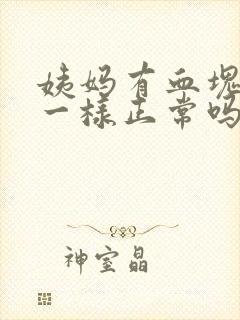 姨妈有血块
一样正常吗
神室晶